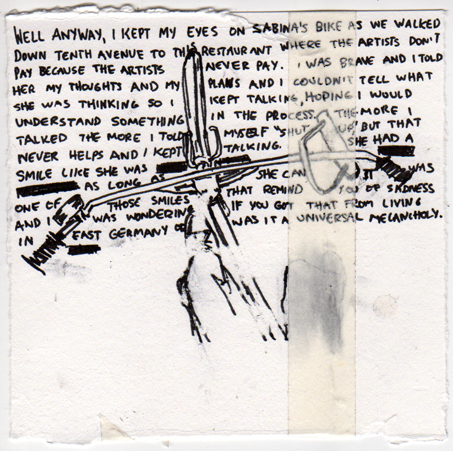 WELL ANYWAY, I KEPT MY EYES ON SABINA'S BIKE AS WE WALKED
DOWN TENTH AVENUE TO THIS RESTAURANT WHERE THE ARTISTS DON'T
PAY BECAUSE THE ARTISTS NEVER PAY. I WAS BRAVE AND I TOLD
HER MY THOUGHTS AND MY PLANS AND I COULDN'T TELL WHAT
SHE WAS THINKING SO I KEPT TALKING, HOPING I WOULD
UNDERSTAND SOMETHING IN THE PROCESS. THE MORE I
TALKED THE MORE I TOLD MYSELF "SHUT UP," BUT THAT
NEVER HELPS AND I KEPT TALKING. SHE HAD A
SMILE LIKE SHE WAS SHE CAN WAS
AS LONG AS THAT REMIND YOU OF SADNESS
ONE OF THOSE SMILES IF YOU GOT THAT FROM LIVING
AND I WAS WONDERING WAS IT A UNIVERSAL MELANCHOLY.
IN EAST GERMANY OR